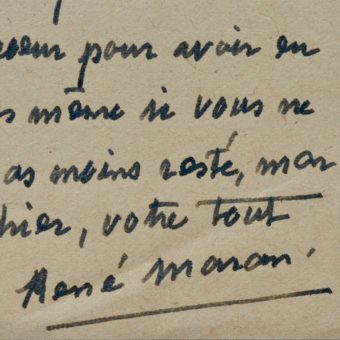 coeur pour avoir eu
s même si vous ne
as moins resté, mar
hier, votre tout
René Maran.